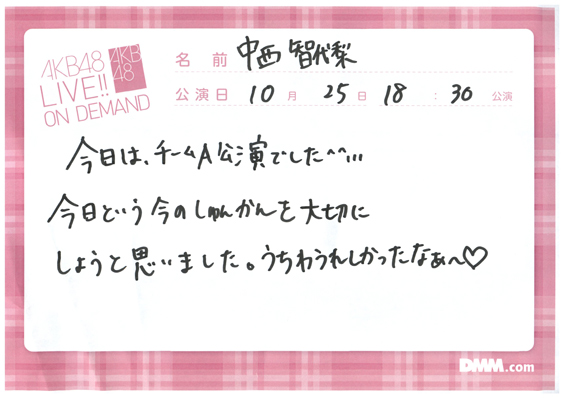 AKB48
LIVE!!
ON DEMAND
AKB
48
名 前 中西 智代梨
公演日 10 月 25 日 18 : 30 公演
今日は、チームA公演でした^^...
今日という今のしゅんかんを大切に
しようと思いました。うちわうれしかったなぁ〜♡
DMM.com